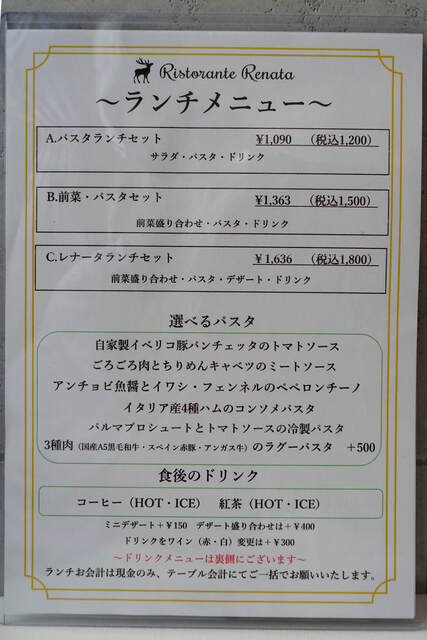 Ristorante Renata
~ランチメニュー~
A.パスタランチセット ¥1,090 (税込1,200)
サラダ・パスタ・ドリンク
B.前菜・パスタセット ¥1,363 (税込1,500)
前菜盛り合わせ・パスタ・ドリンク
C.レナータランチセット ¥1,636 (税込1,800)
前菜盛り合わせ・パスタ・デザート・ドリンク
選べるパスタ
自家製イベリコ豚パンチェッタのトマトソース
ごろごろ肉とちりめんキャベツのミートソース
アンチョビ魚醤とイワシ・フェンネルのペペロンチーノ
イタリア産4種ハムのコンソメパスタ
パルマプロシュートとトマトソースの冷製パスタ
3種肉(国産A5黒毛和牛・スペイン赤豚・アンガス牛)のラグーパスタ +500
食後のドリンク
コーヒー(HOT・ICE) 紅茶(HOT・ICE)
ミニデザート+¥150 デザート盛り合わせは+¥400
ドリンクをワイン(赤・白)変更は+¥300
~ドリンクメニューは裏側にございます~
ランチお会計は現金のみ、テーブル会計にてご一括でお願いいたします。